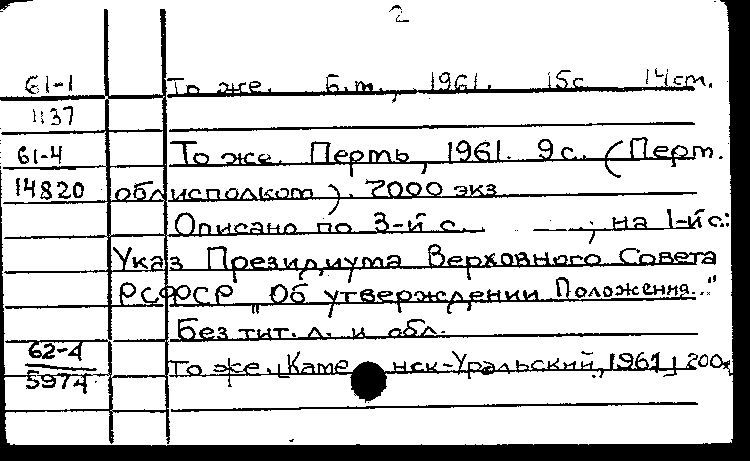 2
61-1 То же. Б.т., 1961. 15с 14ст.
1137
61-4 То же. Пермь, 1961. 9 с. (Перм.
14820 облисполком). 7000 экз
Описано по 3-й с. ; на 1-й с.:
Указ Президиума Верховного Совета
РСФСР „Об утверждении Положения..."
Без тит. л. и обл.
62-4
5974 То же. [Каме нск-Уральский, 1961] 200